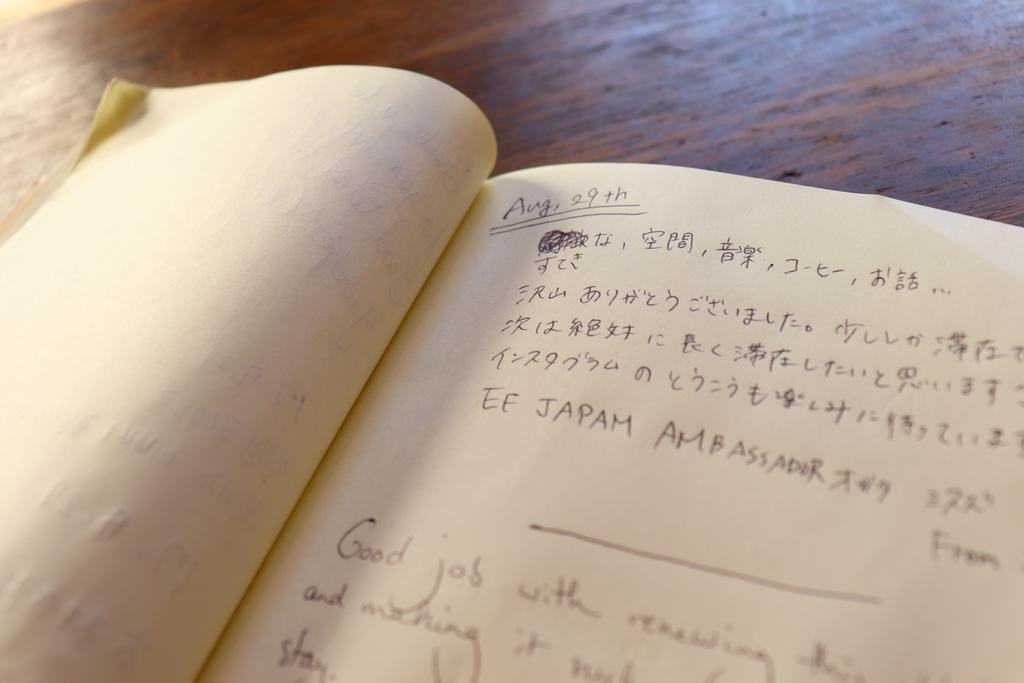 Aug, 29th
な, 空間, 音楽, コーヒー, お話...
すてき
沢山 ありがとうございました。少ししか 滞在で
次は絶対に 長く滞在したいと思います
インスタグラム の とうこうも楽しみに待っています
EF JAPAN AMBASSADOR オガワ ミスズ
From
Good job with renewing this
and making it
stay.